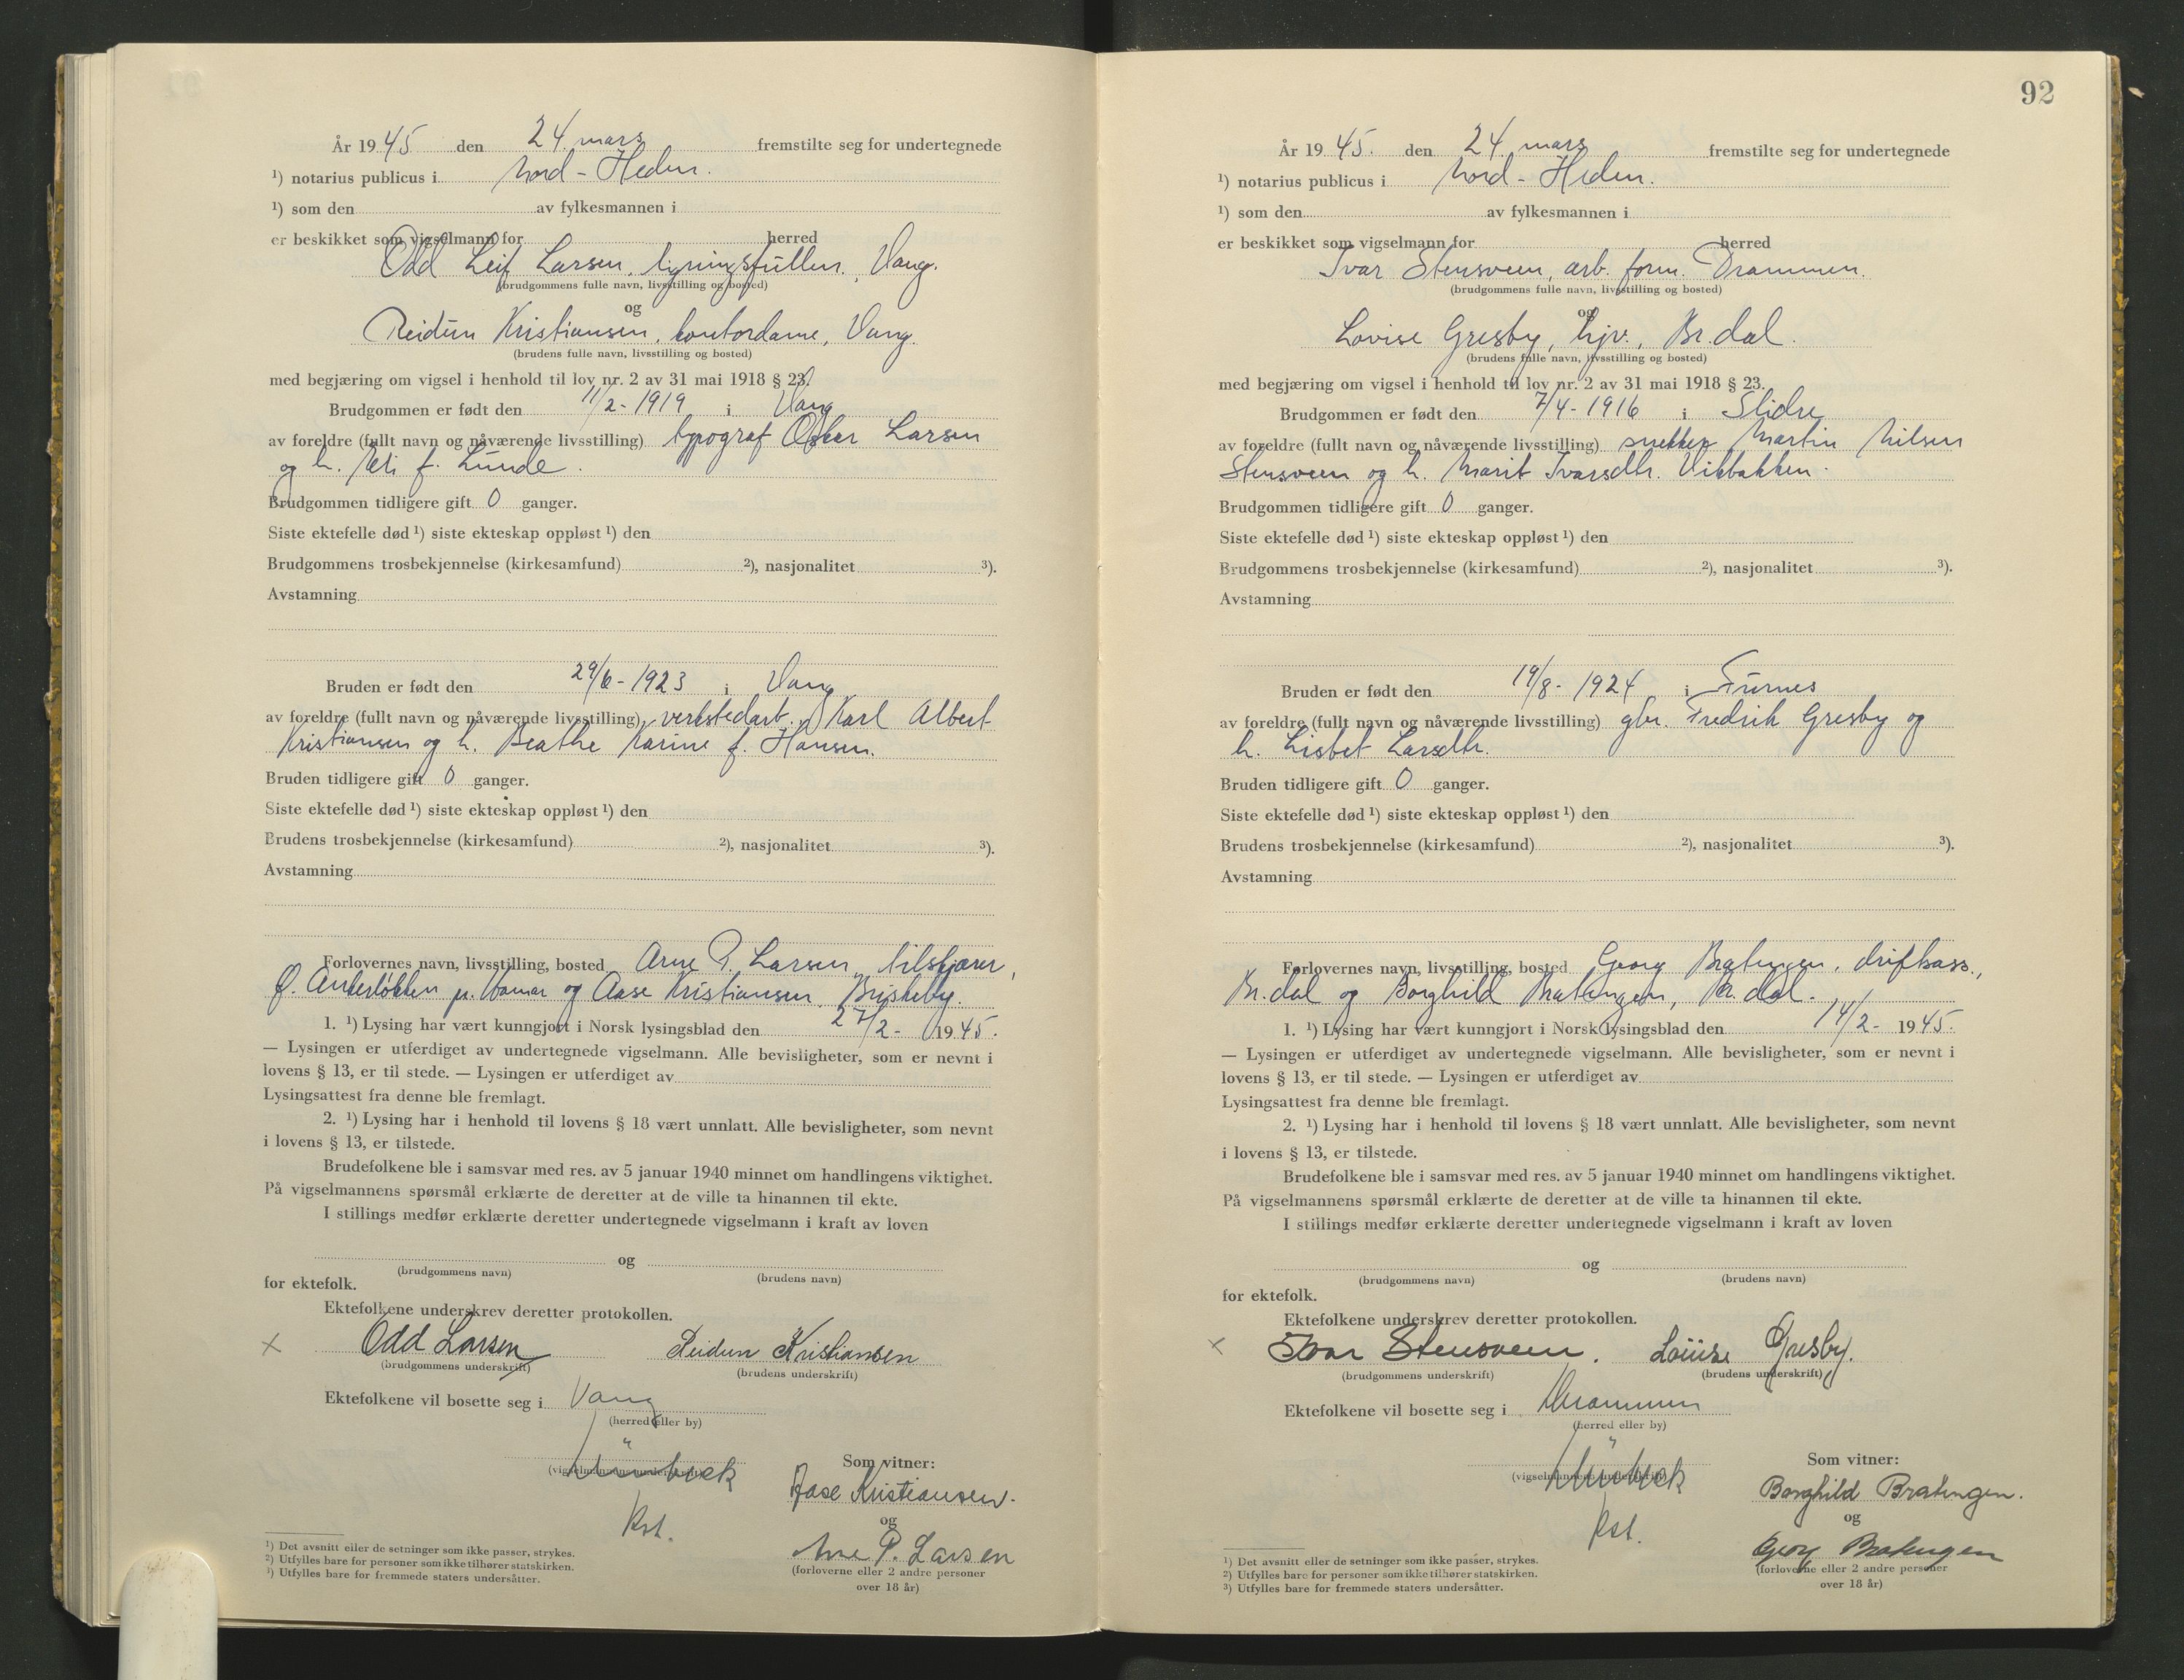 År 1945 den 24 mars fremstilte seg for undertegnede
¹) notarius publicus i Nord-Hedm.
¹) som den av fylkesmannen i
er beskikket som vigselmann for herred
Odd Leif Larsen, Vang.
(brudgommens fulle navn, livsstilling og bosted)
og
Reidun Kristiansen, kontordame, Vang.
(brudens fulle navn, livsstilling og bosted)
med begjæring om vigsel i henhold til lov nr. 2 av 31 mai 1918 § 23.
Brudgommen er født den 11/2-1919 i Vang
av foreldre (fullt navn og nåværende livsstilling) typograf Oskar Larsen
og h. f. Lunde.
Brudgommen tidligere gift 0 ganger.
Siste ektefelle død ¹) siste ekteskap oppløst ¹) den
Brudgommens trosbekjennelse (kirkesamfund) ²), nasjonalitet ³).
Avstamning
Bruden er født den 29/6-1923 i Vang
av foreldre (fullt navn og nåværende livsstilling) verkstedarb. Karl Albert
Kristiansen og h. Beathe Karine f. Hansen.
Bruden tidligere gift 0 ganger.
Siste ektefelle død ¹) siste ekteskap oppløst ¹) den
Brudens trosbekjennelse (kirkesamfund) ²), nasjonalitet ³).
Avstamning
Forlovernes navn, livsstilling, bosted Arne P. Larsen, bilskjører,
Ø. Ankerløkken p. Hamar og Aase Kristiansen, Briskeby.
1. ¹) Lysing har vært kunngjort i Norsk lysingsblad den 27/2- 1945.
— Lysingen er utferdiget av undertegnede vigselmann. Alle bevisligheter, som er nevnt i
lovens § 13, er til stede. — Lysingen er utferdiget av
Lysingsattest fra denne ble fremlagt.
2. ¹) Lysing har i henhold til lovens § 18 vært unnlatt. Alle bevisligheter, som nevnt
i lovens § 13, er tilstede.
Brudefolkene ble i samsvar med res. av 5 januar 1940 minnet om handlingens viktighet.
På vigselmannens spørsmål erklærte de deretter at de ville ta hinannen til ekte.
I stillings medfør erklærte deretter undertegnede vigselmann i kraft av loven
og
(brudgommens navn) (brudens navn)
for ektefolk.
Ektefolkene underskrev deretter protokollen.
x Odd Larsen Reidun Kristiansen
(brudgommens underskrift) (brudens underskrift)
Ektefolkene vil bosette seg i Vang
(herred eller by)
Som vitner:
(vigselmannens underskrift)
Aase Kristiansen.
og
Arne P. Larsen
(forloverne eller 2 andre personer
over 18 år)
¹) Det avsnitt eller de setninger som ikke passer, strykes.
²) Utfylles bare for personer som ikke tilhører statskirken.
³) Utfylles bare for fremmede staters undersåtter.
92
År 1945. den 24 mars fremstilte seg for undertegnede
¹) notarius publicus i Nord-Hedm.
¹) som den av fylkesmannen i
er beskikket som vigselmann for herred
Ivar Stensveen, arb. form. Drammen.
(brudgommens fulle navn, livsstilling og bosted)
og
Lovise Gresby, hjv., Br.dal.
(brudens fulle navn, livsstilling og bosted)
med begjæring om vigsel i henhold til lov nr. 2 av 31 mai 1918 § 23.
Brudgommen er født den 7/4-1916 i Slidre
av foreldre (fullt navn og nåværende livsstilling) snekker Martin Nilsen
Stensveen og h. Marit Ivarsdtr. Vikbakken.
Brudgommen tidligere gift 0 ganger.
Siste ektefelle død ¹) siste ekteskap oppløst ¹) den
Brudgommens trosbekjennelse (kirkesamfund) ²), nasjonalitet ³).
Avstamning
Bruden er født den 19/8-1924 i Furnes
av foreldre (fullt navn og nåværende livsstilling) gbr. Fredrik Gresby og
h. Lisbet Larsdtr.
Bruden tidligere gift 0 ganger.
Siste ektefelle død ¹) siste ekteskap oppløst ¹) den
Brudens trosbekjennelse (kirkesamfund) ²), nasjonalitet ³).
Avstamning
Forlovernes navn, livsstilling, bosted Georg Bratengen, driftsass.,
Br.dal og Borghild Bratengen, Br.dal.
1. ¹) Lysing har vært kunngjort i Norsk lysingsblad den 14/2- 1945.
— Lysingen er utferdiget av undertegnede vigselmann. Alle bevisligheter, som er nevnt i
lovens § 13, er til stede. — Lysingen er utferdiget av
Lysingsattest fra denne ble fremlagt.
2. ¹) Lysing har i henhold til lovens § 18 vært unnlatt. Alle bevisligheter, som nevnt
i lovens § 13, er tilstede.
Brudefolkene ble i samsvar med res. av 5 januar 1940 minnet om handlingens viktighet.
På vigselmannens spørsmål erklærte de deretter at de ville ta hinannen til ekte.
I stillings medfør erklærte deretter undertegnede vigselmann i kraft av loven
og
(brudgommens navn) (brudens navn)
for ektefolk.
Ektefolkene underskrev deretter protokollen.
x Ivar Stensveen. Lovise Gresby.
(brudgommens underskrift) (brudens underskrift)
Ektefolkene vil bosette seg i Drammen
(herred eller by)
Som vitner:
(vigselmannens underskrift)
Borghild Bratengen.
og
Georg Bratengen
(forloverne eller 2 andre personer
over 18 år)
¹) Det avsnitt eller de setninger som ikke passer, strykes.
²) Utfylles bare for personer som ikke tilhører statskirken.
³) Utfylles bare for fremmede staters undersåtter.